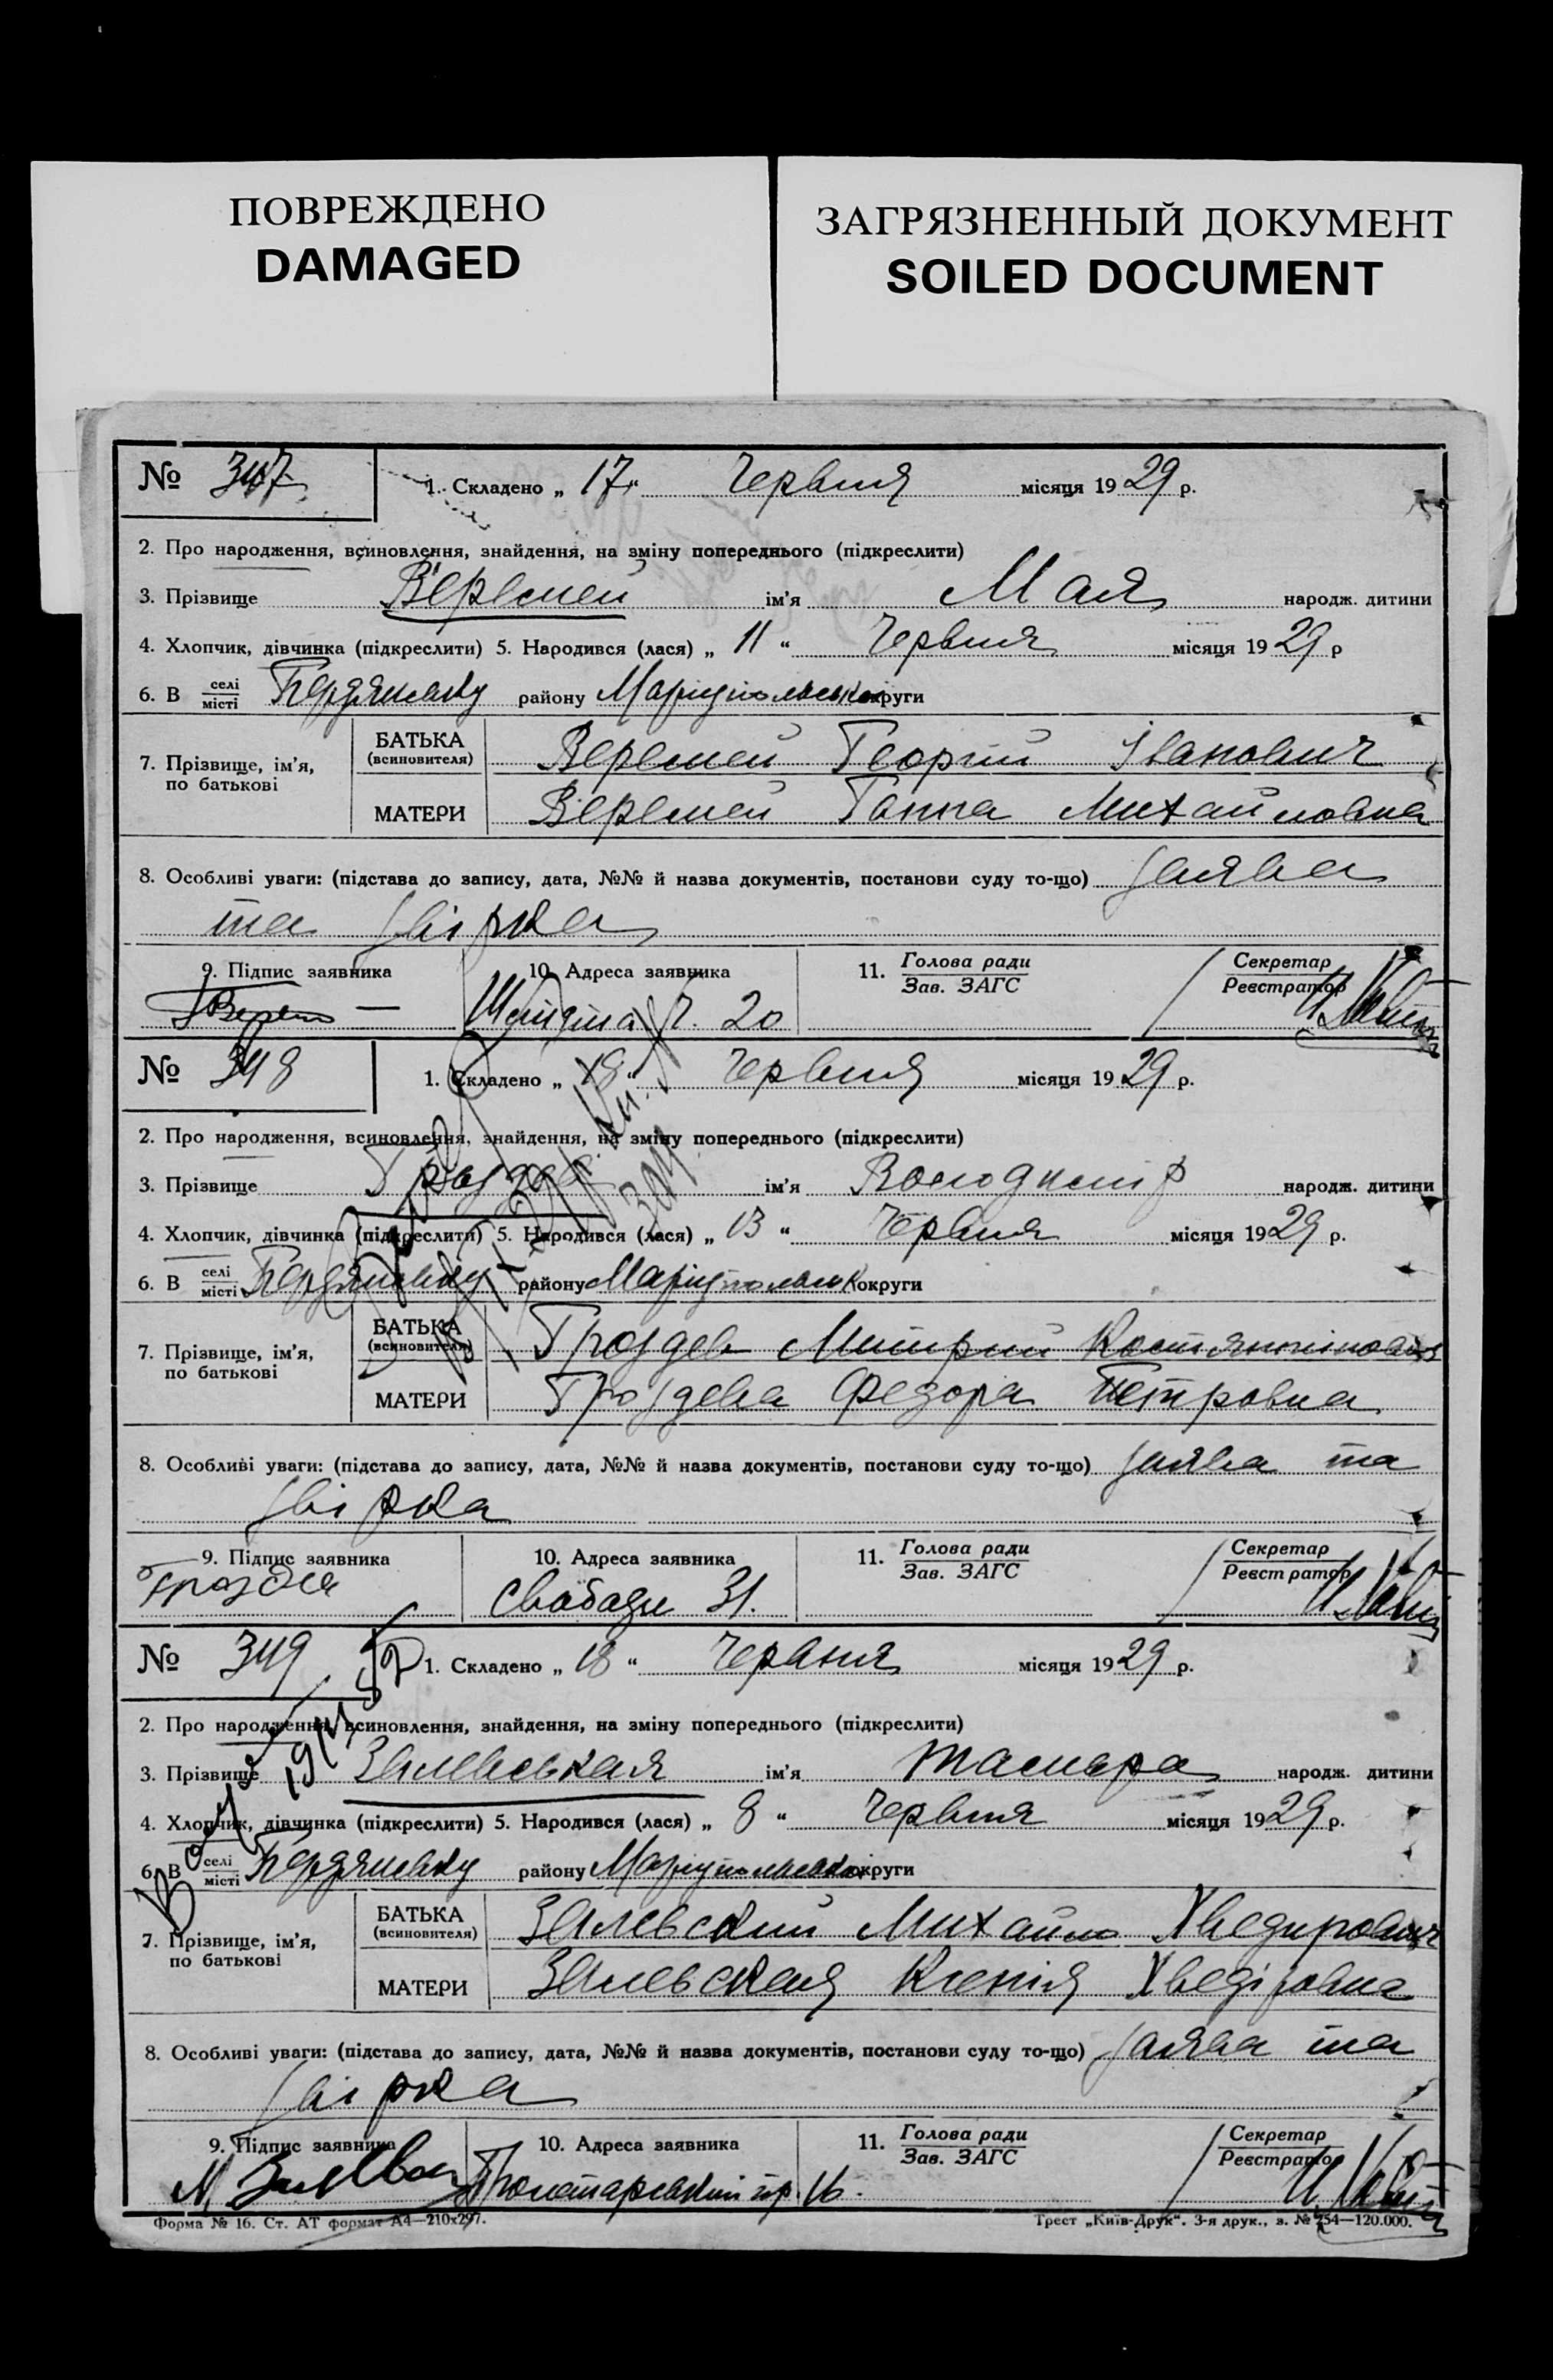 ПОВРЕЖДЕНО
DAMAGED
ЗАГРЯЗНЕННЫЙ ДОКУМЕНТ
SOILED DOCUMENT
№ 347 1. Складено „ 17 “ Червня місяця 1929 р.
2. Про народження, всиновлення, знайдення, на зміну попереднього (підкреслити)
3. Прізвище Веремей ім'я Мая народж. дитини
4. Хлопчик, дівчинка (підкреслити) 5. Народився (лася) „ 11 “ Червня місяця 1929 р
6. В селі місті Бердянську району Маріупольськ округи
7. Прізвище, ім'я, по батькові
БАТЬКА (всиновителя) Веремей Георгій Іванович
МАТЕРИ Веремей Ганна Михайловна
8. Особливі уваги: (підстава до запису, дата, №№ й назва документів, постанови суду то-що) заява
та звірка
9. Підпис заявника 10. Адреса заявника 11. Голова ради Зав. ЗАГС Секретар Реєстратор
Шмідта 20
№ 348 1. Складено „ 18 “ Червня місяця 1929 р.
2. Про народження, всиновлення, знайдення, на зміну попереднього (підкреслити)
3. Прізвище ім'я Володимір народж. дитини
4. Хлопчик, дівчинка (підкреслити) 5. Народився (лася) „ 13 “ Червня місяця 1929 р.
6. В селі місті Бердянську району Маріупольськ округи
7. Прізвище, ім'я, по батькові
БАТЬКА (всиновителя) Гроздев Митрий Костянтинович
МАТЕРИ Гроздева Федора Петровна
8. Особливі уваги: (підстава до запису, дата, №№ й назва документів, постанови суду то-що) заява та
звірка
9. Підпис заявника 10. Адреса заявника 11. Голова ради Зав. ЗАГС Секретар Реєстратор
Свободи 31.
№ 349 1. Складено „ 18 “ Червня місяця 1929 р.
2. Про народження, всиновлення, знайдення, на зміну попереднього (підкреслити)
3. Прізвище Залевськая ім'я Тамара народж. дитини
4. Хлопчик, дівчинка (підкреслити) 5. Народився (лася) „ 8 “ Червня місяця 1929 р.
6. В селі місті Бердянську району Маріупольської округи
7. Прізвище, ім'я, по батькові
БАТЬКА (всиновителя) Залевский Михайло Хведирович
МАТЕРИ Залевская Ксенія Хведіровна
8. Особливі уваги: (підстава до запису, дата, №№ й назва документів, постанови суду то-що) заява та
звірка
9. Підпис заявника 10. Адреса заявника 11. Голова ради Зав. ЗАГС Секретар Реєстратор
пр. 16.
Форма № 16. Ст. АТ формат А4—210х297. Трест „Київ-Друк“. 3-я друк., з. № 254—120.000.